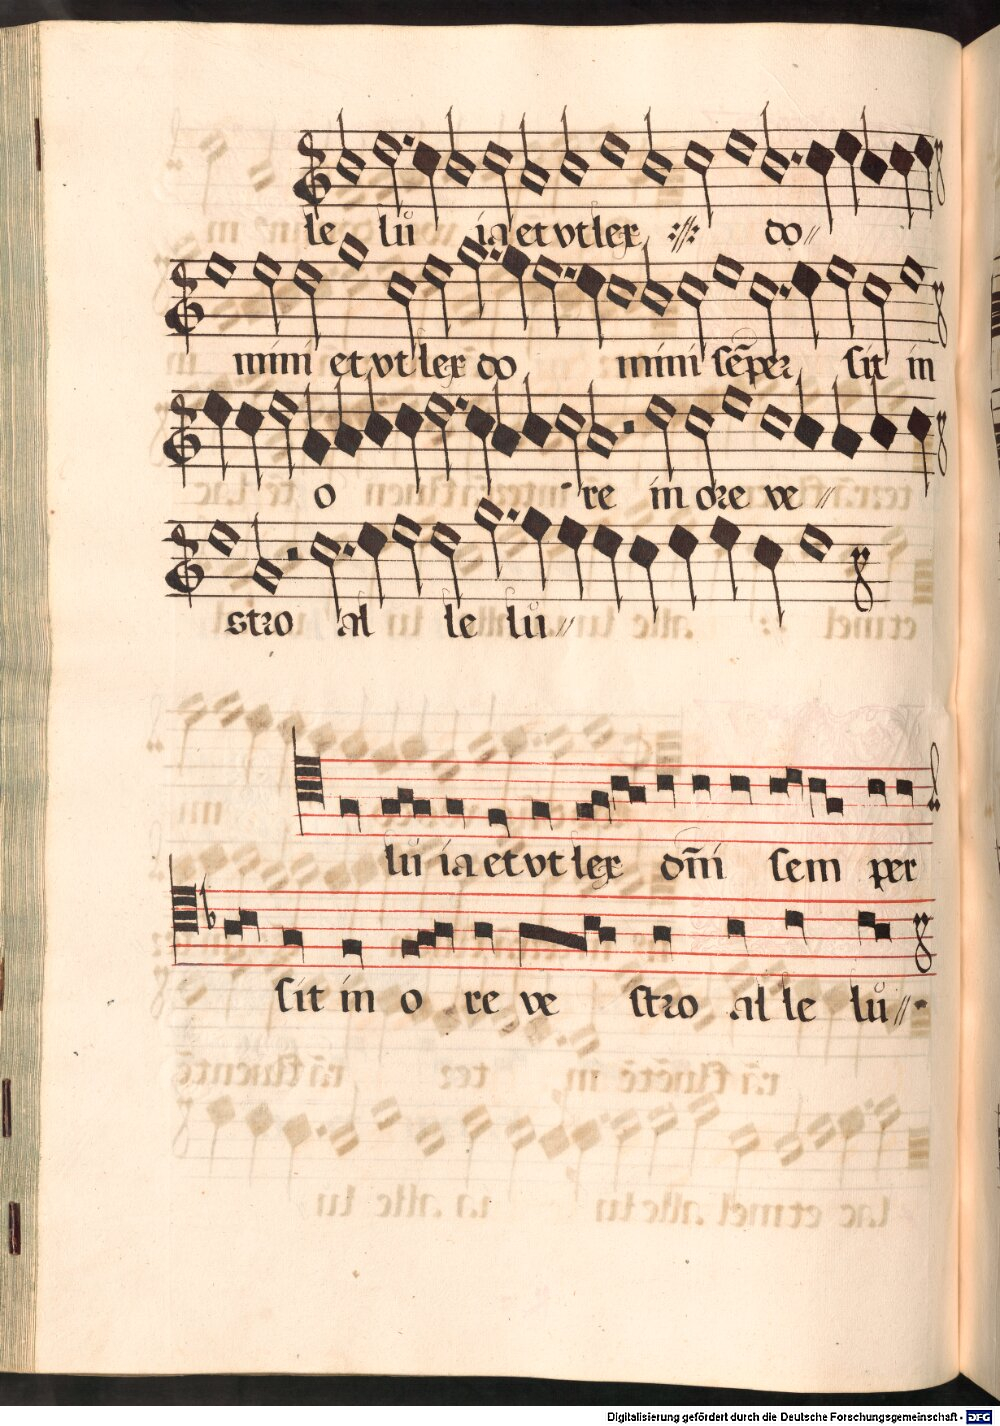 le lů ia et vt lex ://: do//
mini et vt lex do mini sēper sit in
o re in ore ve //
stro al le lů //
lů ia et vt lex dm̄i sem per
sit in o re ve stro al le lů //
Digitalisierung gefördert durch die Deutsche Forschungsgemeinschaft - DFG